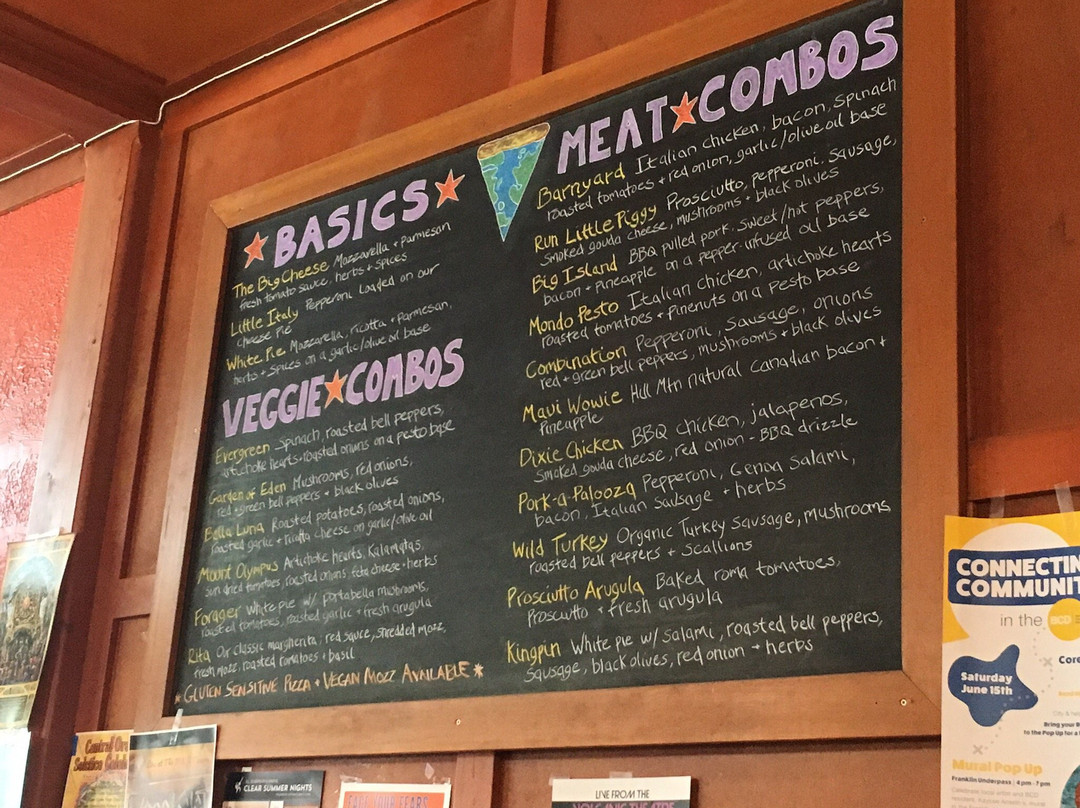 BASICS
The Big Cheese Mozzarella + Parmesan
fresh tomato sauce, herbs + spices
Little Italy Pepperoni Loaded on our
cheese pie
White Pie Mozzarella, ricotta + Parmesan,
herbs + spices on a garlic/olive oil base
VEGGIE COMBOS
Evergreen Spinach, roasted bell peppers,
artichoke hearts + roasted onions on a pesto base
Garden of Eden Mushrooms, red onions,
red + green bell peppers + black olives
Bella Luna Roasted potatoes, roasted onions,
roasted garlic + ricotta cheese on garlic/olive oil
Mount Olympus Artichoke hearts, Kalamatas,
sun dried tomatoes, roasted onions, feta cheese + herbs
Forager White pie w/ portabella mushrooms,
roasted tomatoes, roasted garlic + fresh arugula
Rita Our classic margherita; red sauce, shredded mozz,
fresh mozz, roasted tomatoes + basil
GLUTEN SENSITIVE PIZZA + VEGAN MOZZ AVAILABLE
MEAT COMBOS
Barnyard Italian chicken, bacon, spinach
roasted tomatoes + red onion, garlic/olive oil base
Run Little Piggy Prosciutto, pepperoni. Sausage,
smoked gouda cheese, mushrooms + black olives
Big Island BBQ pulled pork. Sweet/hot peppers,
bacon + pineapple on a pepper-infused oil base
Mondo Pesto Italian chicken, artichoke hearts
roasted tomatoes + pinenuts on a Pesto base
Combination Pepperoni, Sausage, onions
red + green bell peppers, mushrooms + black olives
Maui Wowie Hill Mtn natural Canadian bacon +
Pineapple
Dixie Chicken BBQ chicken, jalapenos,
Smoked gouda cheese, red onion - BBQ drizzle
Pork-a-Palooza Pepperoni, Genoa Salami,
bacon, Italian Sausage + herbs
Wild Turkey Organic Turkey Sausage, mushrooms
roasted bell peppers + Scallions
Prosciutto Arugula Baked roma tomatoes,
Prosciutto + fresh arugula
Kingpin White pie w/ Salami, roasted bell peppers,
Sausage, black olives, red onion + herbs
CONNECTIN
COMMUNIT
in the BCG
Saturday
June 15th
Core
Bring your B
to the Pop Up for a
Mural Pop Up
Franklin Underpass | 4 pm - 7 pm
Central Or
Solstice Celeb
CLEAR SUMMER NIGHTS
FACE YOUR FEARS
LIVE FROM THE
VOLCANIC THEATRE